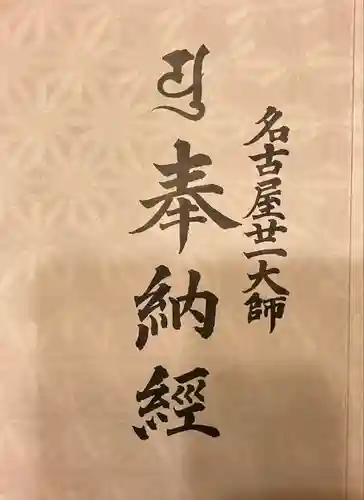 名古屋廿一大師
𑖧ු奉納經